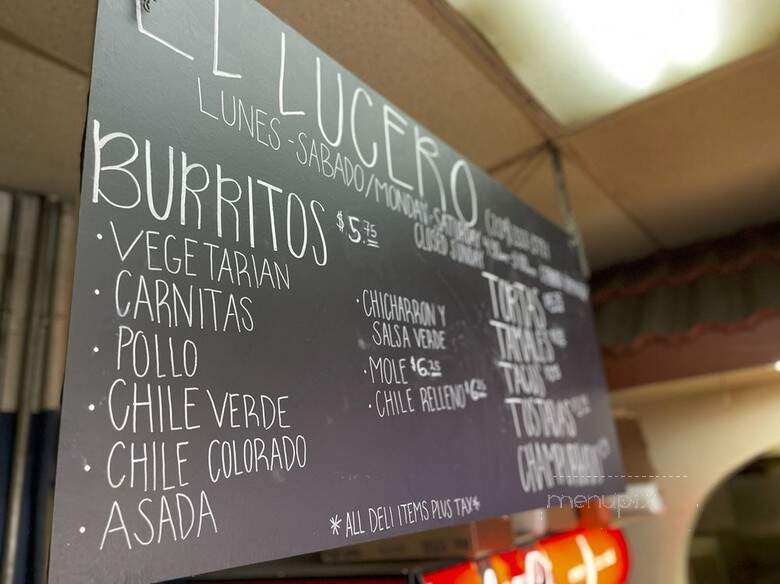 EL LUCERO
LUNES-SABADO/MONDAY-SATURDAY
CLOSED SUNDAY
BURRITOS $5.75
• VEGETARIAN
• CARNITAS
• POLLO
• CHILE VERDE
• CHILE COLORADO
• ASADA
• CHICHARRON Y
SALSA VERDE
• MOLE $6.25
• CHILE RELLENO $6.25
TORTAS
TAMALES
TACOS
TOSTADAS
CHAMPURRADO
*ALL DELI ITEMS PLUS TAX*
menupix